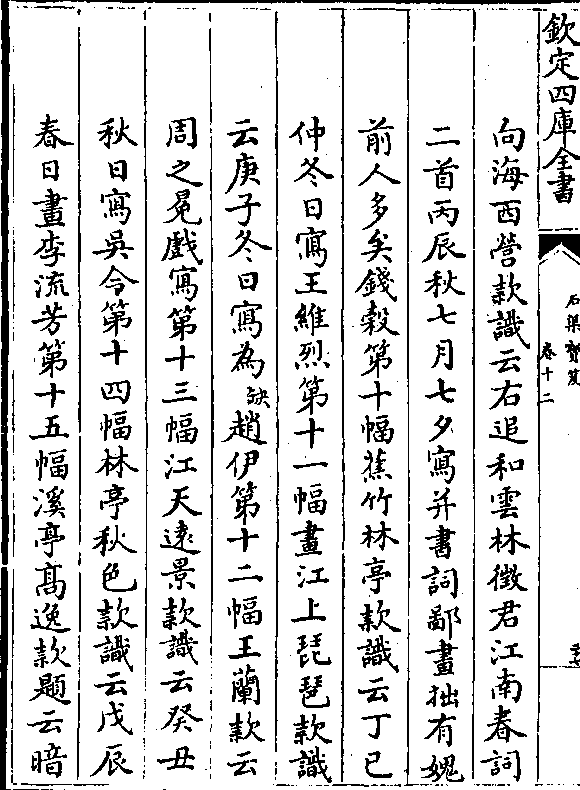 欽定四庫全書
石渠寶笈
卷十二
向海西營款識云右追和雲林徵君江南春詞
二首丙辰秋七月七夕寫并書詞鄙畫拙有媿
前人多矣錢穀第十幅蕉竹林亭款識云丁巳
仲冬日寫王維烈第十一幅畫江上琵琶款識
云庚子冬日寫為缺趙伊第十二幅王蘭款云
周之冕戲寫第十三幅江天遠景款識云癸丑
秋日寫吳令第十四幅林亭秋色款識云戊辰
春日畫李流芳第十五幅溪亭髙逸款題云暗